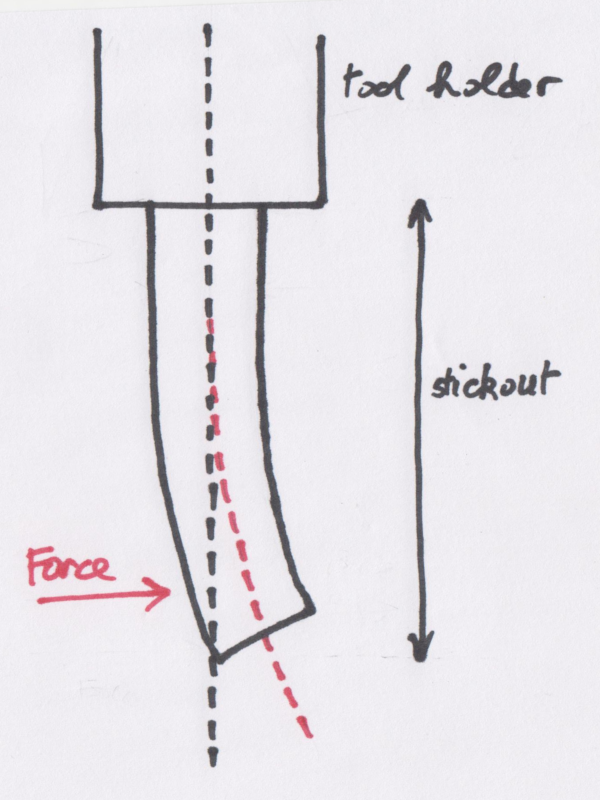 tool holder
stickout
Force